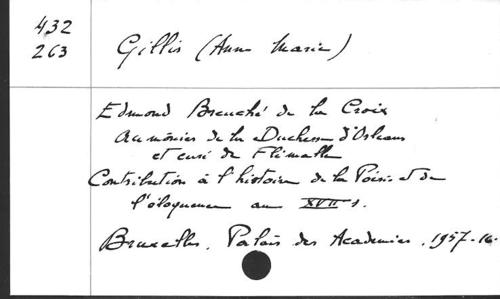 432
263
Gillis (Anne Marie)
Edmond Breuché de la Croix
aumônier de la Duchesse d'Orleans
et curé de Flémalle
Contribution à l'histoire de la Poésie et de
l'éloquence au XVII s.
Bruxelles, Palais des Academies, 1957-16.